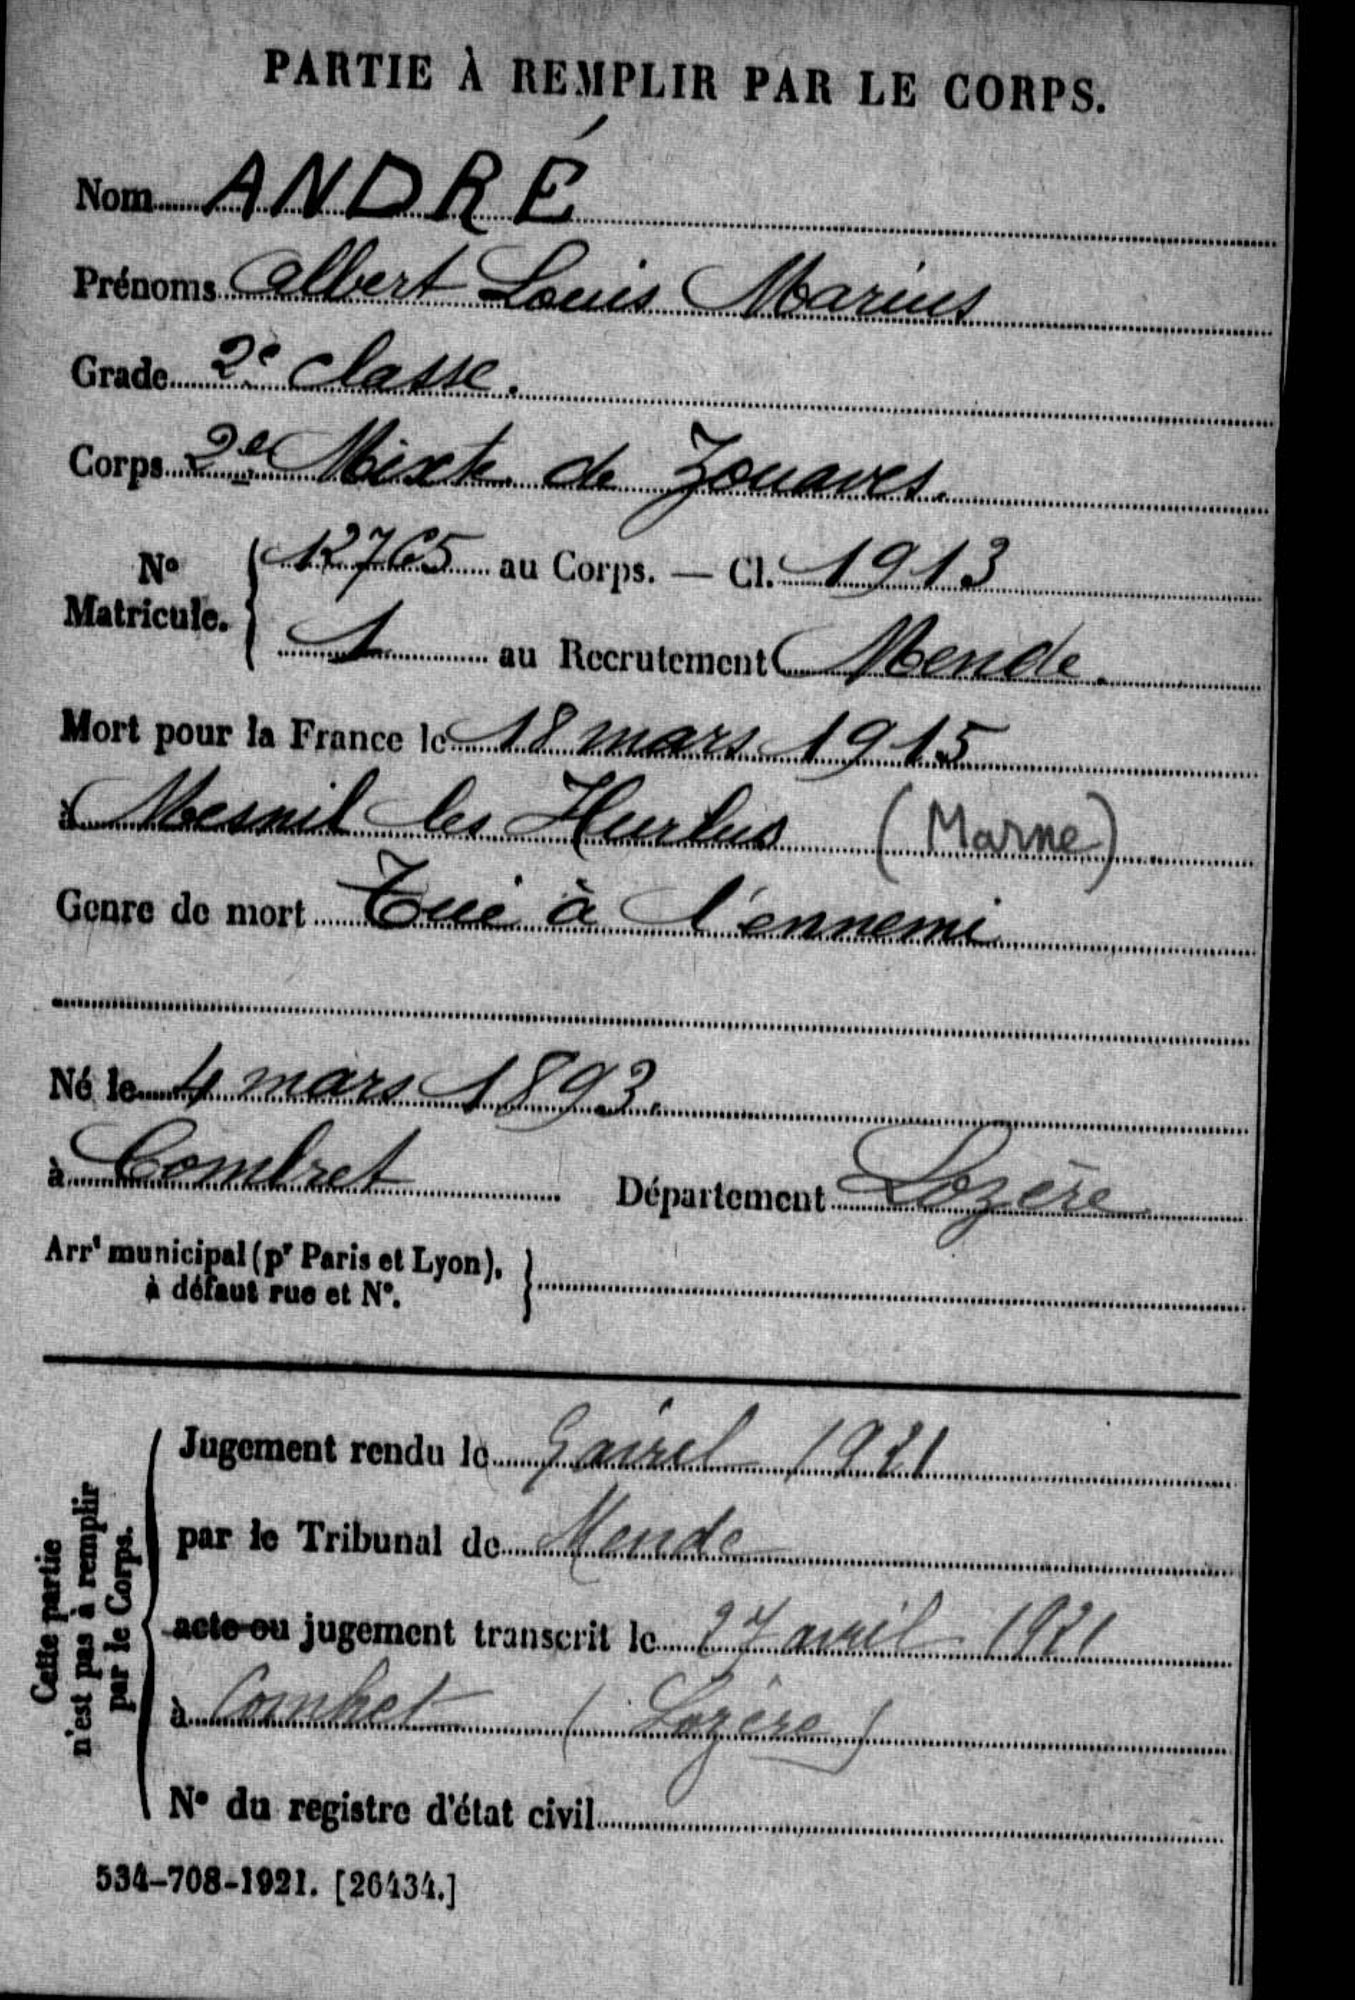 PARTIE À REMPLIR PAR LE CORPS.
Nom ANDRÉ
Prénoms Albert Louis Marius
Grade 2e classe.
Corps 2e Mixte de Zouaves.
No Matricule. { 12765 au Corps. — Cl. 1913
1 au Recrutement Mende.
Mort pour la France le 18 mars 1915
à Mesnil les Hurlus (Marne)
Genre de mort Tué à l'ennemi
Né le 4 mars 1893.
à Combret Département Lozère
Arrt municipal (pr Paris et Lyon), }
à défaut rue et No.
Cette partie
n'est pas à remplir
par le Corps.
Jugement rendu le 9 avril 1921
par le Tribunal de Mende
acte ou jugement transcrit le 27 avril 1921
à Combret (Lozère)
No du registre d'état civil
534-708-1921. [26434.]